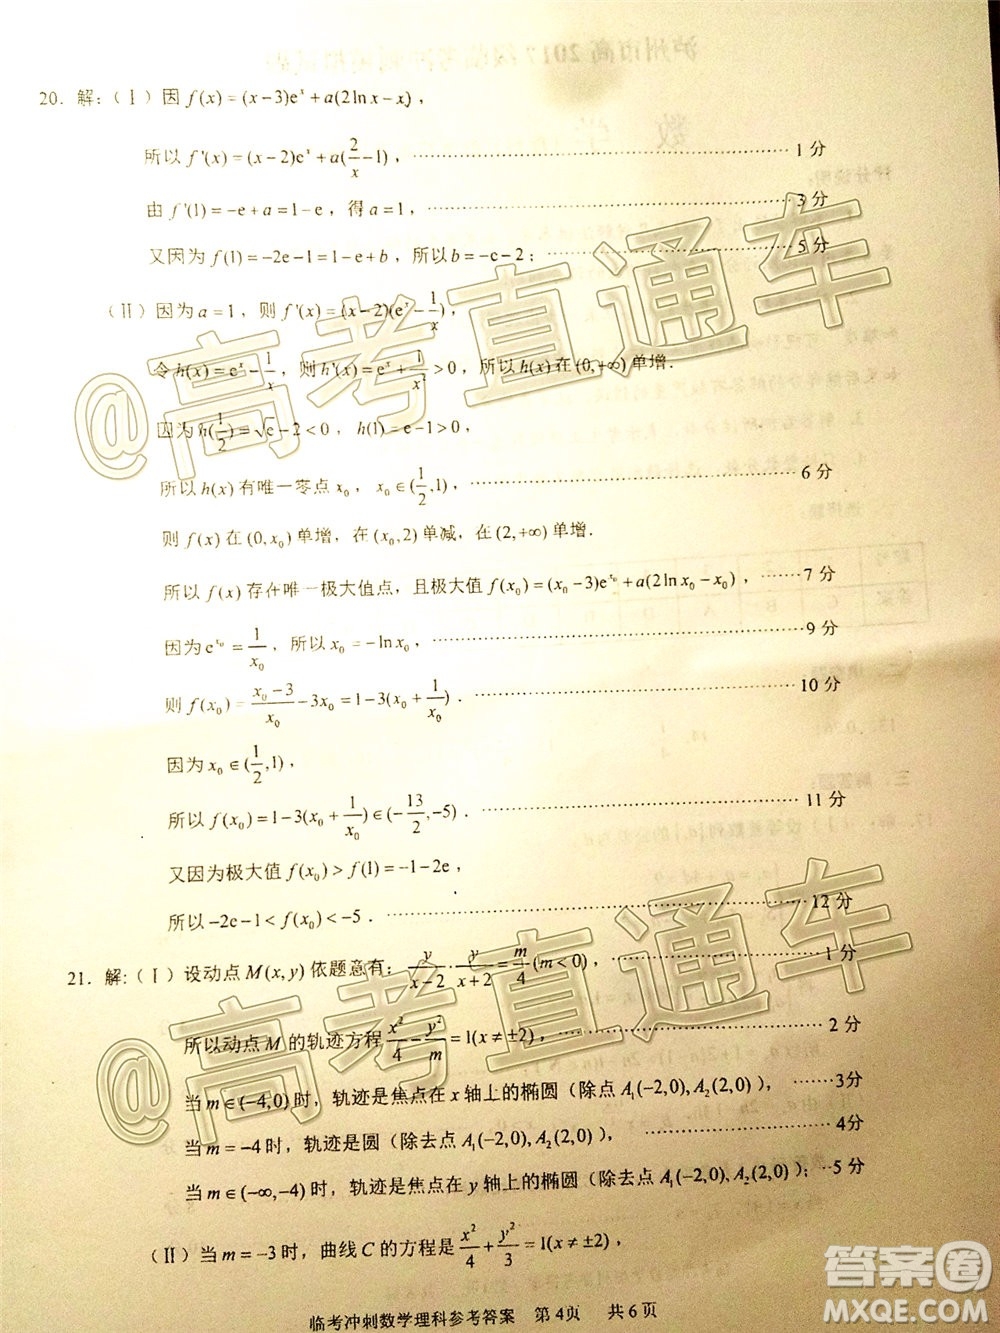 20. 解:(Ⅰ)因 f(x)=(x-3)eˣ+a(2ln x-x),
所以 f'(x)=(x-2)eˣ+a(2/x-1), ……1 分
由 f'(1)=-e+a=1-e, 得 a=1, ……3 分
又因为 f(1)=-2e-1=1-e+b, 所以 b=-e-2; ……5 分
(Ⅱ)因为 a=1, 则 f'(x)=(x-2)(eˣ-1/x),
令 h(x)=eˣ-1/x, 则 h'(x)=eˣ+1/x²>0, 所以 h(x) 在 (0,+∞) 单增.
因为 h(1/2)=√e-2<0, h(1)=e-1>0,
所以 h(x) 有唯一零点 x₀, x₀∈(1/2,1), ……6 分
则 f(x) 在 (0,x₀) 单增, 在 (x₀,2) 单减, 在 (2,+∞) 单增.
所以 f(x) 存在唯一极大值点, 且极大值 f(x₀)=(x₀-3)e^(x₀)+a(2ln x₀-x₀), ……7 分
因为 e^(x₀)=1/x₀, 所以 x₀=-ln x₀, ……9 分
则 f(x₀)=(x₀-3)/x₀-3x₀=1-3(x₀+1/x₀). ……10 分
因为 x₀∈(1/2,1),
所以 f(x₀)=1-3(x₀+1/x₀)∈(-13/2,-5). ……11 分
又因为极大值 f(x₀)>f(1)=-1-2e,
所以 -2e-1<f(x₀)<-5. ……12 分
21. 解:(Ⅰ)设动点 M(x,y) 依题意有: y/(x-2)·y/(x+2)=m/4(m<0), ……1 分
所以动点 M 的轨迹方程 x²/4-y²/m=1(x≠±2), ……2 分
当 m∈(-4,0) 时, 轨迹是焦点在 x 轴上的椭圆 (除点 A₁(-2,0),A₂(2,0)), ……3分
当 m=-4 时, 轨迹是圆 (除去点 A₁(-2,0),A₂(2,0)), ……4分
当 m∈(-∞,-4) 时, 轨迹是焦点在 y 轴上的椭圆 (除点 A₁(-2,0),A₂(2,0)); ··5 分
(Ⅱ)当 m=-3 时, 曲线 C 的方程是 x²/4+y²/3=1(x≠±2),
临考冲刺数学理科参考答案 第 4页 共 6 页
@高考直通车
@高考直通车
答案圈
MXQE.COM